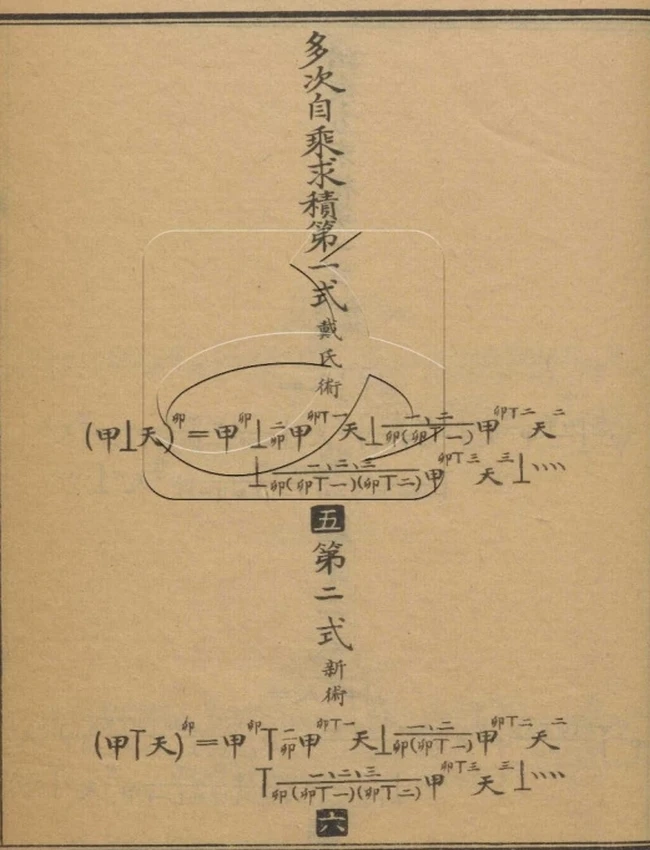 多次自乘求積第一式戴氏術
(甲⊥天)^卯=甲^卯⊥二/卯甲^卯丅一天⊥一、二/卯(卯丅一)甲^卯丅二天^二
⊥一、二、三/卯(卯丅一)(卯丅二)甲^卯丅三天^三⊥、、、、
五
第二式新術
(甲丅天)^卯=甲^卯丅一/卯甲^卯丅一天⊥一、二/卯(卯丅一)甲^卯丅二天^二
丅一、二、三/卯(卯丅一)(卯丅二)甲^卯丅三天^三⊥、、、、
六